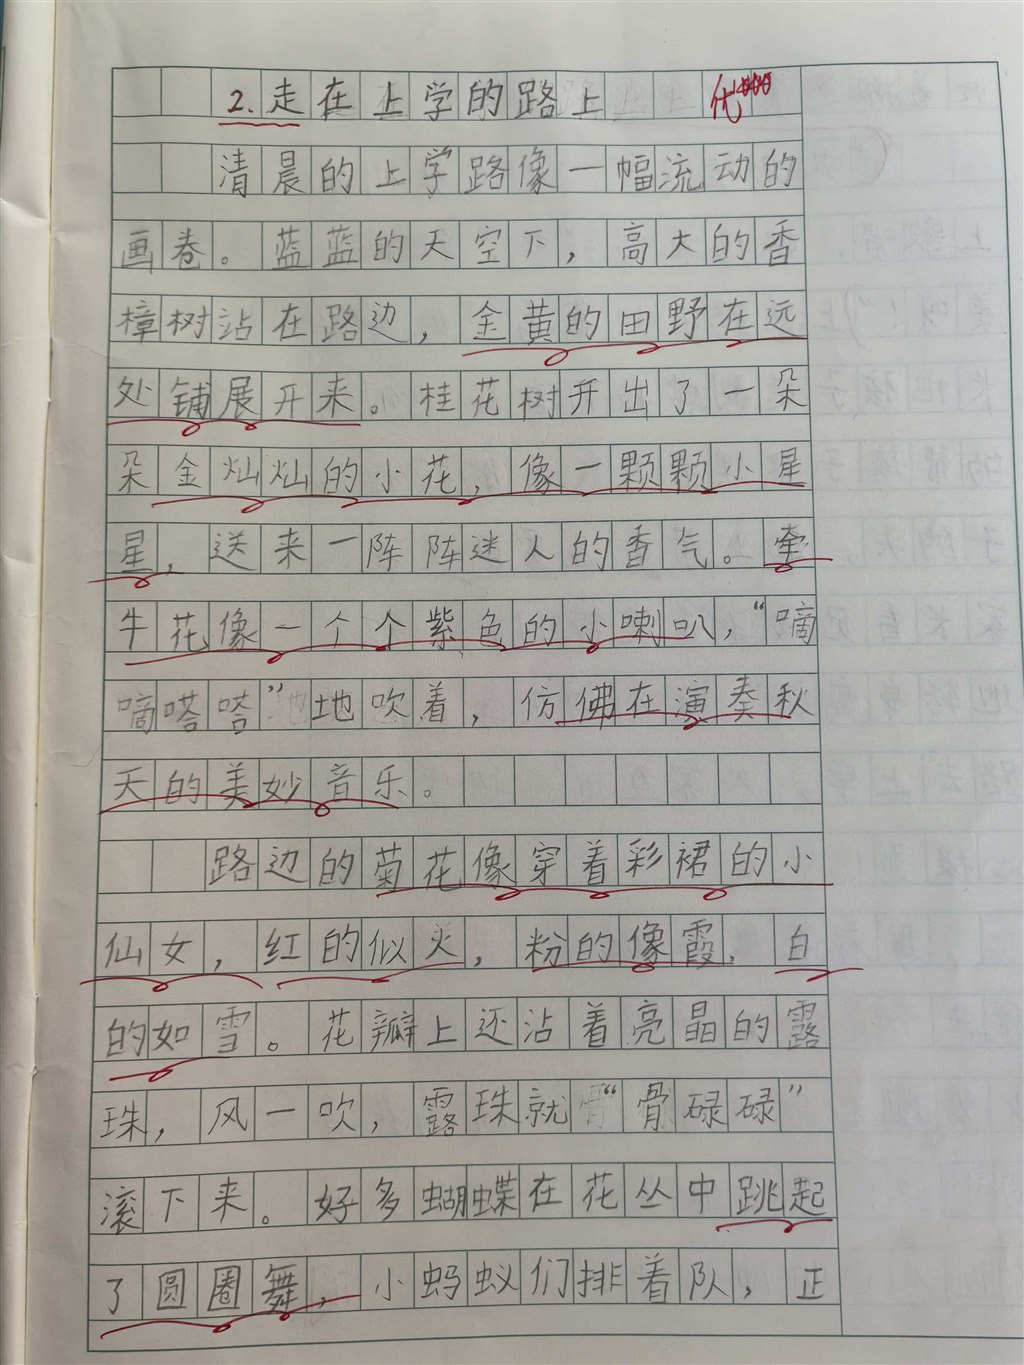 2.走在上学的路上 优
清晨的上学路像一幅流动的
画卷。蓝蓝的天空下，高大的香
樟树站在路边，金黄的田野在远
处铺展开来。桂花树开出了一朵
朵金灿灿的小花，像一颗颗小星
星，送来一阵阵迷人的香气。牵
牛花像一个个紫色的小喇叭，“嘀
嘀嗒嗒”地吹着，仿佛在演奏秋
天的美妙音乐。
路边的菊花像穿着彩裙的小
仙女，红的似火，粉的像霞，白
的如雪。花瓣上还沾着亮晶的露
珠，风一吹，露珠就“骨碌碌”
滚下来。好多蝴蝶在花丛中跳起
了圆圈舞，小蚂蚁们排着队，正